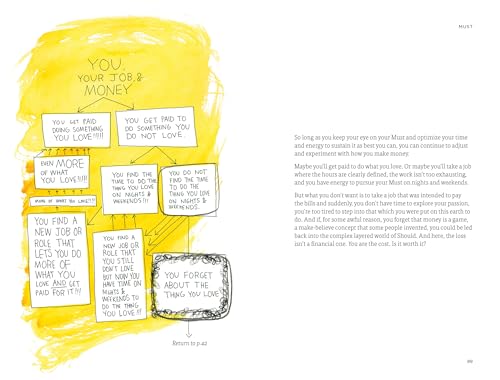 YOU,
YOUR JOB, &
MONEY
YOU GET PAID
DOING SOMETHING
YOU LOVE!!!!!
YOU GET PAID TO
DO SOMETHING YOU
DO NOT LOVE.
EVEN MORE
OF WHAT
YOU LOVE!!!!
MORE OF WHAT YOU LOVE!!!!
YOU FIND A
NEW JOB OR
ROLE THAT
LETS YOU DO
MORE OF
WHAT YOU
LOVE AND GET
PAID FOR IT!!!
YOU FIND THE
TIME TO DO THE
THING YOU LOVE
ON NIGHTS &
WEEKENDS!!!
YOU DO NOT
FIND THE TIME
TO DO THE
THING YOU
LOVE ON NIGHTS
& WEEKENDS.
YOU FIND A
NEW JOB OR
ROLE THAT
YOU STILL
DON'T LOVE
BUT NOW YOU
HAVE TIME ON
NIGHTS &
WEEKENDS TO
DO THE THING
YOU LOVE!!!
YOU FORGET
ABOUT THE
THING YOU LOVE
Return to p 42
MUST
So long as you keep your eye on your Must and optimize your time
and energy to sustain it as best you can, you can continue to adjust
and experiment with how you make money.
Maybe you'll get paid to do what you love. Or maybe you'll take a job
where the hours are clearly defined, the work isn't too exhausting,
and you have energy to pursue your Must on nights and weekends.
But what you don't want is to take a job that was intended to pay
the bills and suddenly, you don't have time to explore your passion,
you're too tired to step into that which you were put on this earth to
do. And if, for some awful reason, you forget that money is a game,
a make-believe concept that some people invented, you could be led
back into the complex layered world of Should. And here, the loss
isn't a financial cost. You are the cost. Is it worth it?